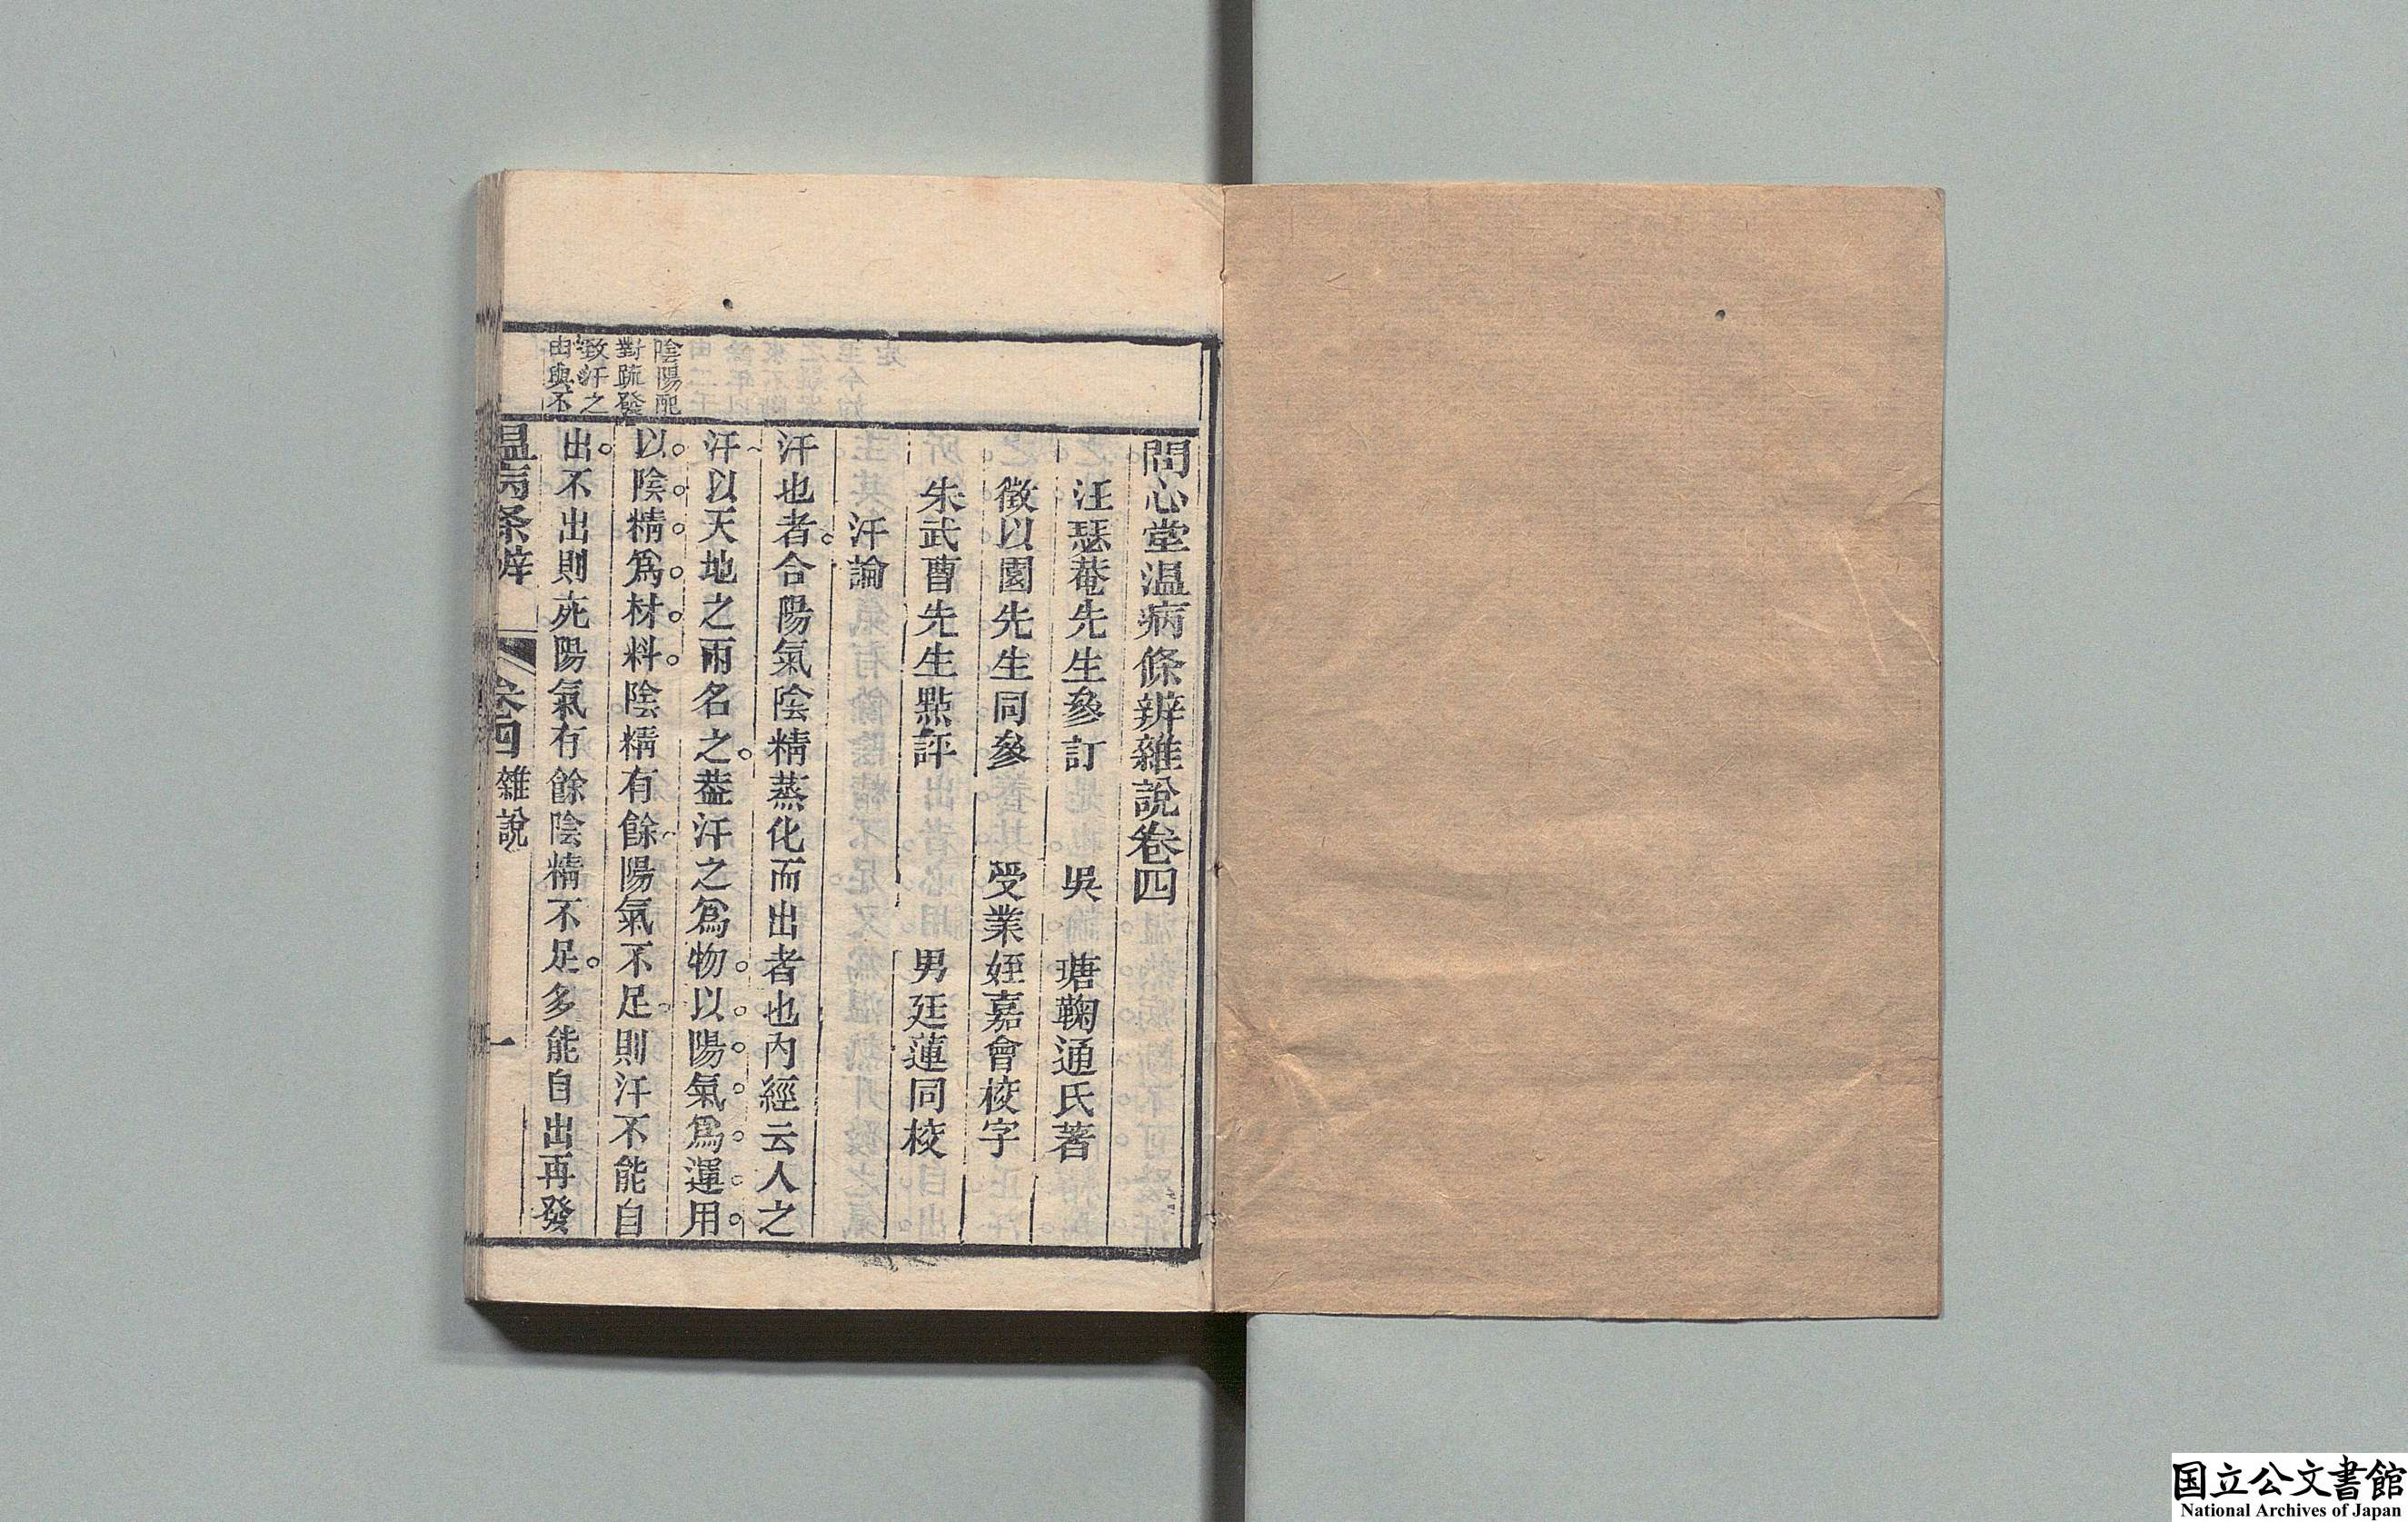 問心堂溫病條辨雜說卷四
汪瑟菴先生參訂 吳 瑭鞠通氏著
徵以園先生同參 受業姪嘉會校字
朱武曹先生點評 男廷蓮同校
汗論
汗也者合陽氣陰精蒸化而出者也內經云人之
汗以天地之雨名之葢汗之爲物以陽氣爲運用
以陰精爲材料陰精有餘陽氣不足則汗不能自
出不出則死陽氣有餘陰精不足多能自出再發
陰陽配
對疏發
致汗之
由與不
溫病条辨 卷四 雜說 一
国立公文書館
National Archives of Japan